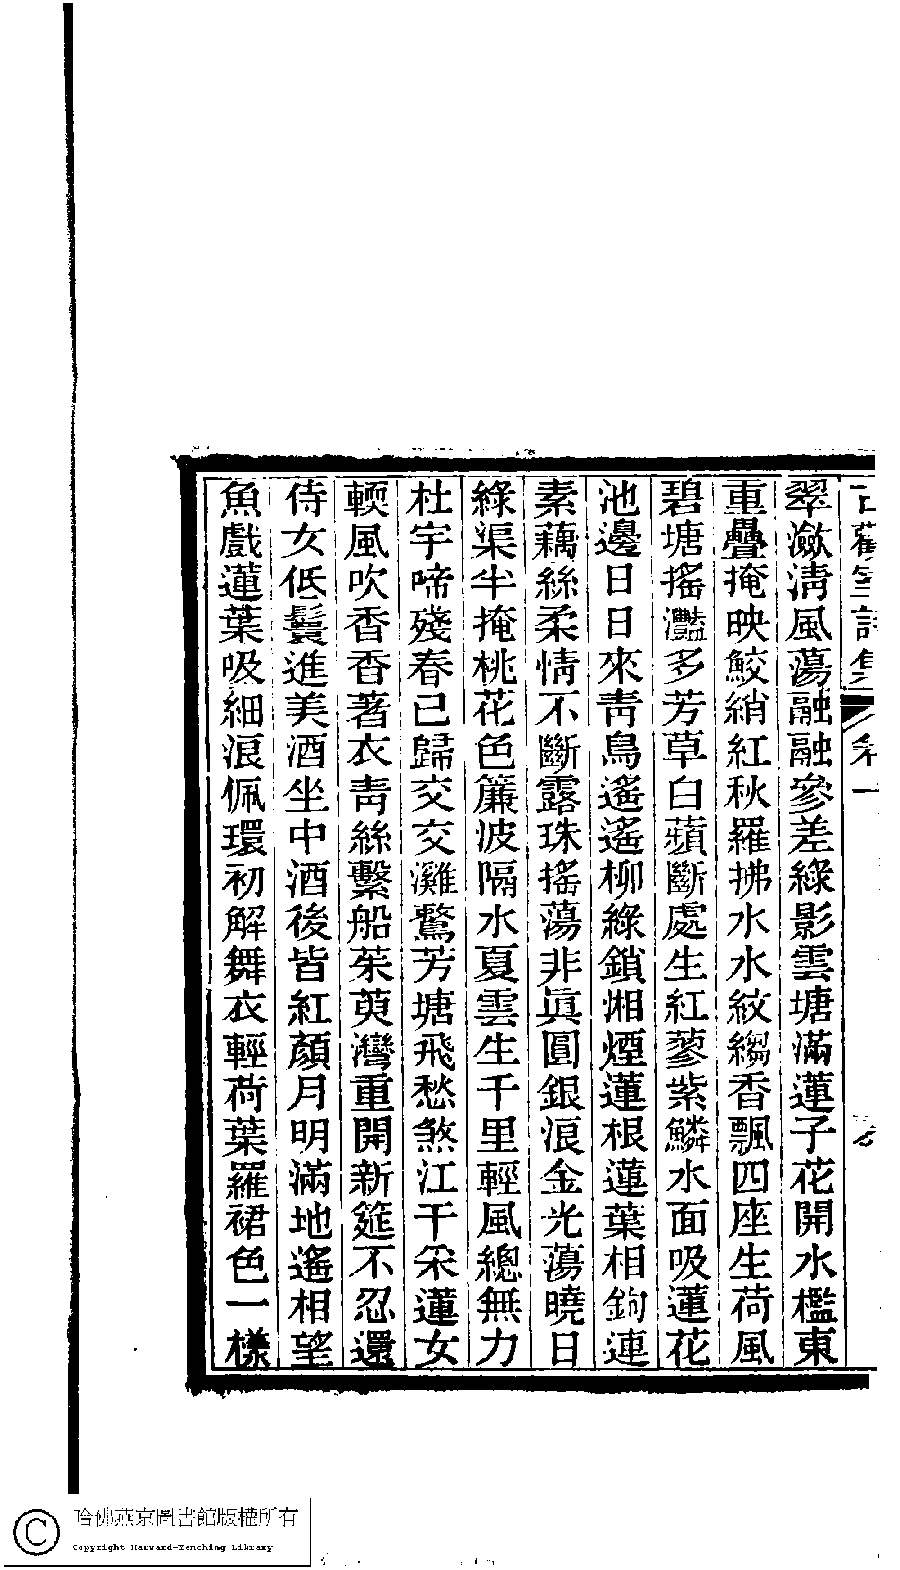 古歡室詩集 卷一
翠瀲淸風蕩融融參差綠影雲塘滿蓮子花開水檻東
重疊掩映鮫綃紅秋羅拂水水紋縐香飄四座生荷風
碧塘搖灩多芳草白蘋斷處生紅蓼紫鱗水面吸蓮花
池邊日日來靑鳥遙遙柳綠鎖湘煙蓮根蓮葉相鉤連
素藕絲柔情不斷露珠搖蕩非眞圓銀浪金光蕩曉日
綠渠半掩桃花色簾波隔水夏雲生千里輕風總無力
杜宇啼殘春已歸交交鸂鶩芳塘飛愁煞江干采蓮女
輭風吹香香著衣靑絲繫船茱萸灣重開新筵不忍還
侍女低鬟進美酒坐中酒後皆紅顏月明滿地遙相望
魚戲蓮葉吸細浪佩環初解舞衣輕荷葉羅裙色一樣
哈佛燕京圖書館版權所有
Copyright Harvard-Yenching Library